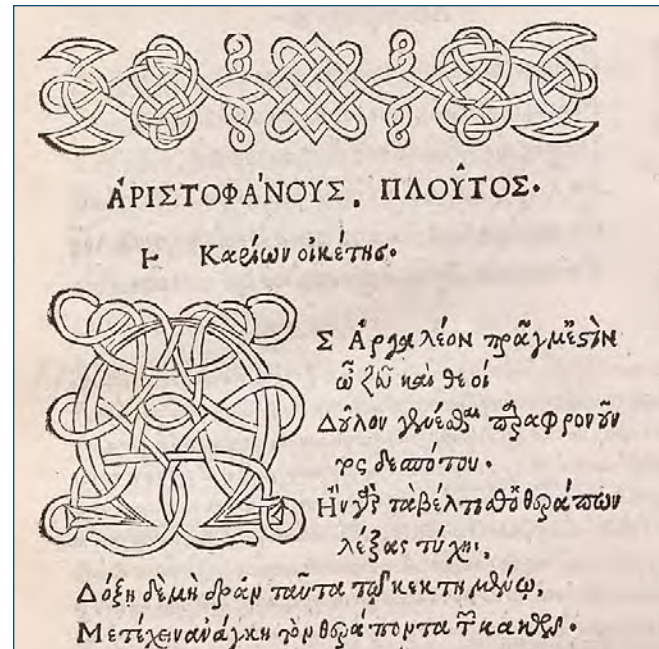 ἈΡΙΣΤΟΦΆΝΟΥΣ, ΠΛΟΥ͂ΤΟΣ.
Καρίων οἰκέτης.
ΩΣ Ἀργαλέον πρᾶγμ' ἐστὶν
ὦ ζεῦ καὶ θεοί
Δοῦλον γενέσθαι παραφρονοῦν
τος δεσπότου.
Ἢν γὰρ τὰ βέλτισθ' ὁ θεράπων
λέξας τύχηι,
Δόξη δὲ μὴ δρᾶν ταῦτα τῷ κεκτημένῳ,
Μετέχειν ἀνάγκη τὸν θεράποντα τῶν κακῶν.